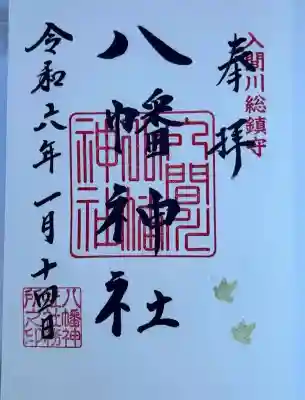 入間川総鎮守
奉拝
八幡神社
令和六年一月十四日
入間川
八幡
神社
八幡神
社社務
所之印